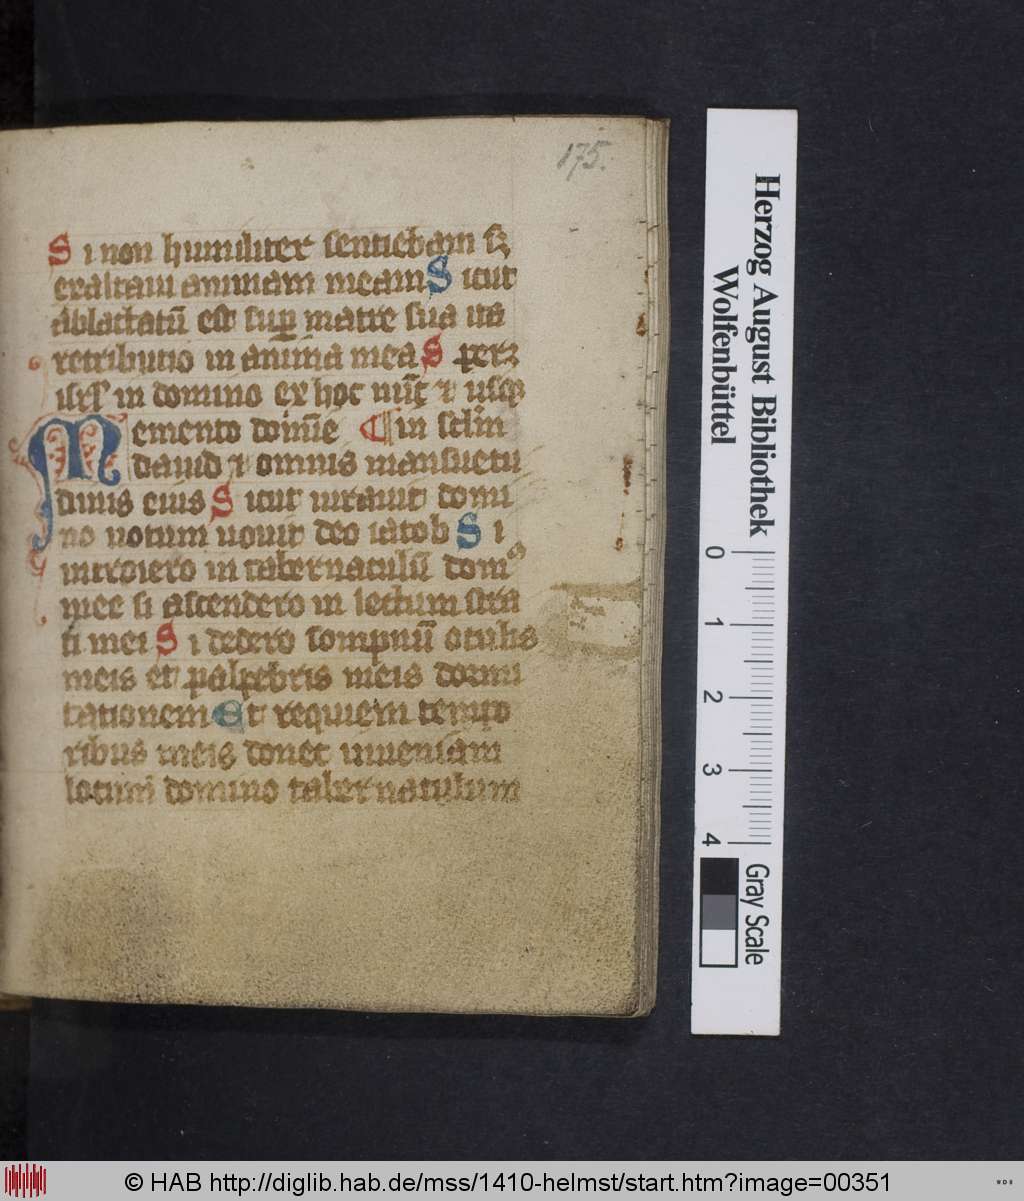 175.
Si non humiliter sentiebam sꝫ
exaltaui animam meam Sicut
ablactatū est sup̄ matre sua ita
retributio in anima mea Sperꝫ
isrl̄ in domino ex hoc nūc et usqꝫ
Memento domīe in sclm̄
dauid et omnis mansuetu
dinis eius Sicut iurauit domi
no uotum uouit deo iacob Si
introiero in tabernaculū domꝰ
mee si ascendero in lectum stra
ti mei Si dedero sompnū oculis
meis et palpebris meis dormi
tationem Et requiem tempo
ribus meis donec inueniam
locum domino tabernaculum
Herzog August Bibliothek
Wolfenbüttel
0 1 2 3 4
Gray Scale
© HAB http://diglib.hab.de/mss/1410-helmst/start.htm?image=00351